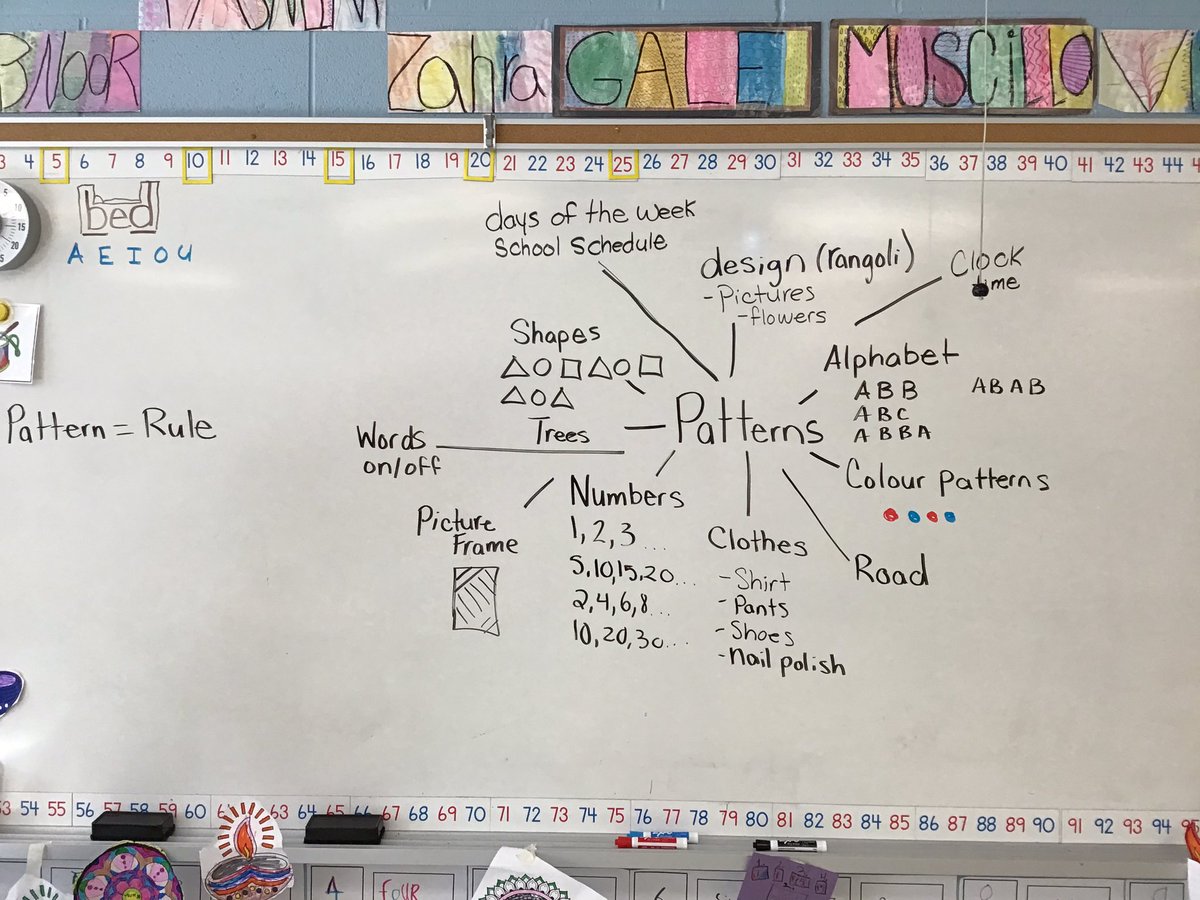 Zahra
GALE
MUSCILLO
3 4 5 6 7 8 9 10 11 12 13 14 15 16 17 18 19 20 21 22 23 24 25 26 27 28 29 30 31 32 33 34 35 36 37 38 39 40 41 42 43 44
bed
A E I O U
days of the week
School Schedule
design (rangoli)
- Pictures
- flowers
Clock
Shapes
Alphabet
A B B
A B A B
A B C
A B B A
Trees
Patterns
Pattern = Rule
Words
on/off
Colour Patterns
Numbers
1, 2, 3 ...
5, 10, 15, 20...
2, 4, 6, 8...
10, 20, 30...
Picture
Frame
Clothes
- Shirt
- Pants
- Shoes
- nail polish
Road
54 55 56 57 58 59 60 63 64 65 66 67 68 69 70 71 72 73 74 75 76 77 78 79 80 81 82 83 84 85 86 87 88 89 90 91 92 93 94
4 four